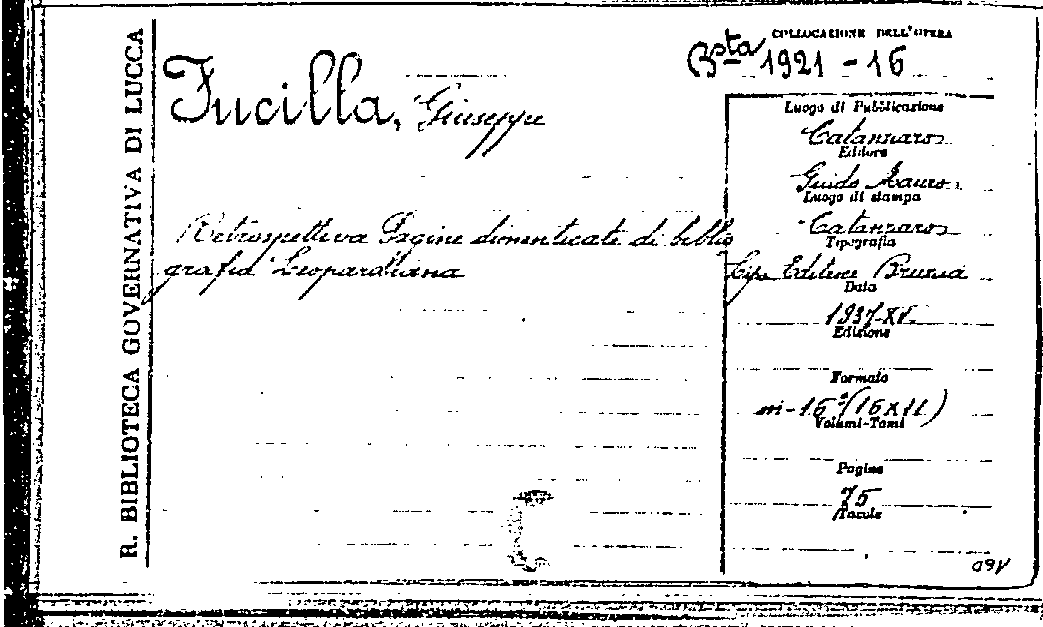 R. BIBLIOTECA GOVERNATIVA DI LUCCA
COLLOCAZIONE DELL'OPERA
Bsta 1921 - 16
Fucilla, Giuseppe
Retrospettiva Pagine dimenticate di biblio
grafia Leopardiana
Luogo di Pubblicazione
Catanzaro
Editore
Guido Mauro
Luogo di stampa
Catanzaro
Tipografia
Tip. Editrice Bruzia
Data
1937-XV.
Edizione
Formato
in-16°(16x11)
Volumi-Tomi
Pagine
75
Tavole